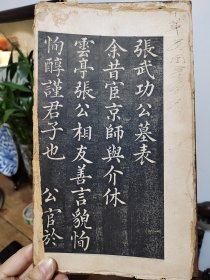 張武功公墓表
余昔宦京師與介休
雲亭張公相友善言貌恂
恂醇謹君子也　公官於